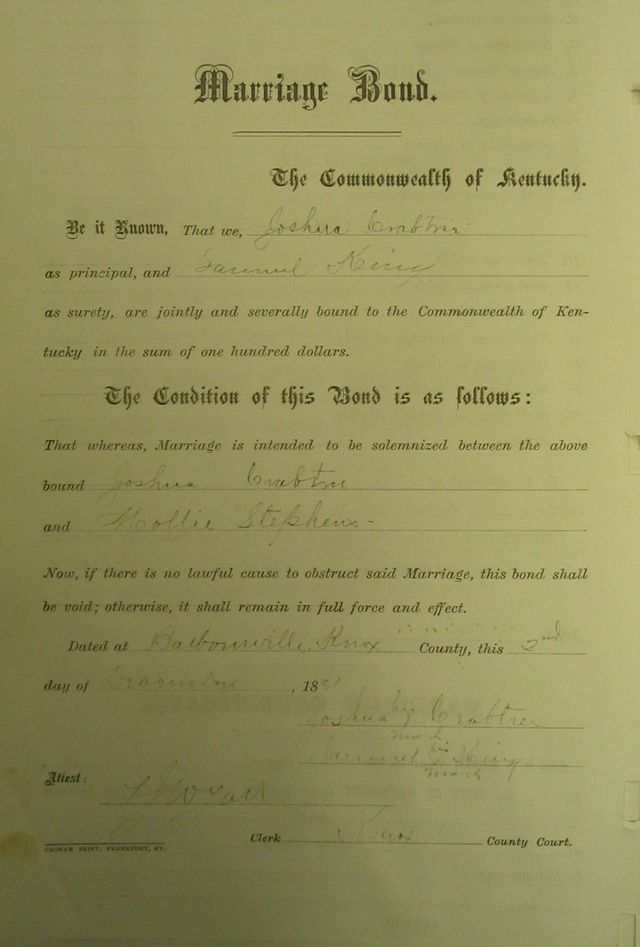 Marriage Bond.
The Commonwealth of Kentucky.
Be it Known, That we, Joshua Crabtree
as principal, and Samuel King
as surety, are jointly and severally bound to the Commonwealth of Ken-
tucky in the sum of one hundred dollars.
The Condition of this Bond is as follows:
That whereas, Marriage is intended to be solemnized between the above
bound Joshua Crabtree
and Mollie Stephens
Now, if there is no lawful cause to obstruct said Marriage, this bond shall
be void; otherwise, it shall remain in full force and effect.
Dated at Barbourville, Knox County, this 2nd
day of , 188
Joshua his Crabtree
mark
Samuel his King
mark
Attest:
Clerk Knox County Court.
YEOMAN PRINT, FRANKFORT, KY.